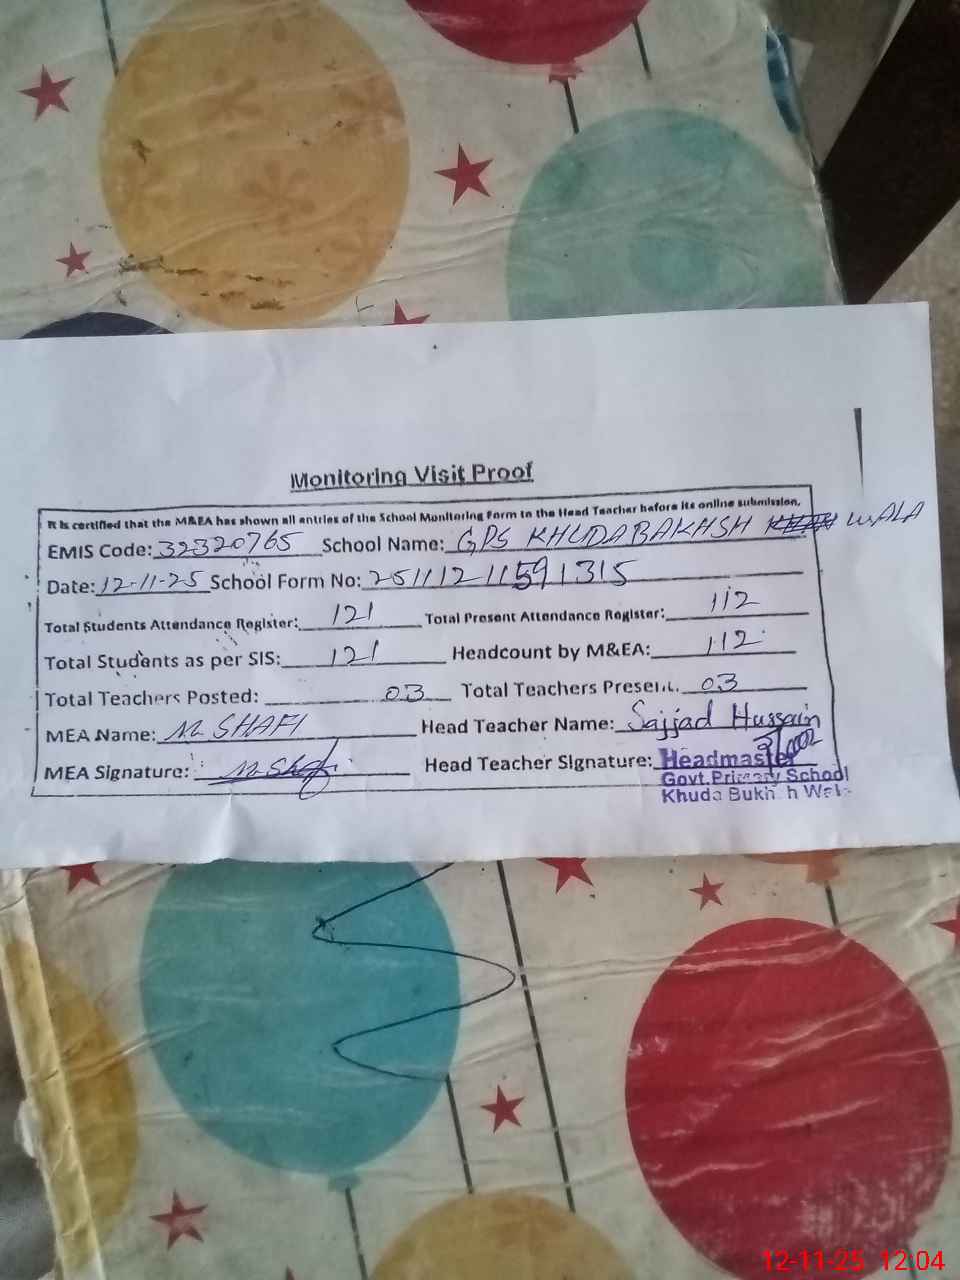 Monitoring Visit Proof
It is certified that the M&EA has shown all entries of the School Monitoring Form to the Head Teacher before its online submission.
EMIS Code: 32320765 School Name: GPS KHUDABAKHSH WALA
Date: 12-11-25 School Form No: 2511121159 1315
Total Students Attendance Register: 121 Total Present Attendance Register: 112
Total Students as per SIS: 121 Headcount by M&EA: 112
Total Teachers Posted: 03 Total Teachers Present: 03
MEA Name: M SHAFI Head Teacher Name: Sajjad Hussain
MEA Signature: M Shafi Head Teacher Signature:
Headmaster
Govt. Primary School
Khuda Bukhsh Wala
12-11-25 12:04